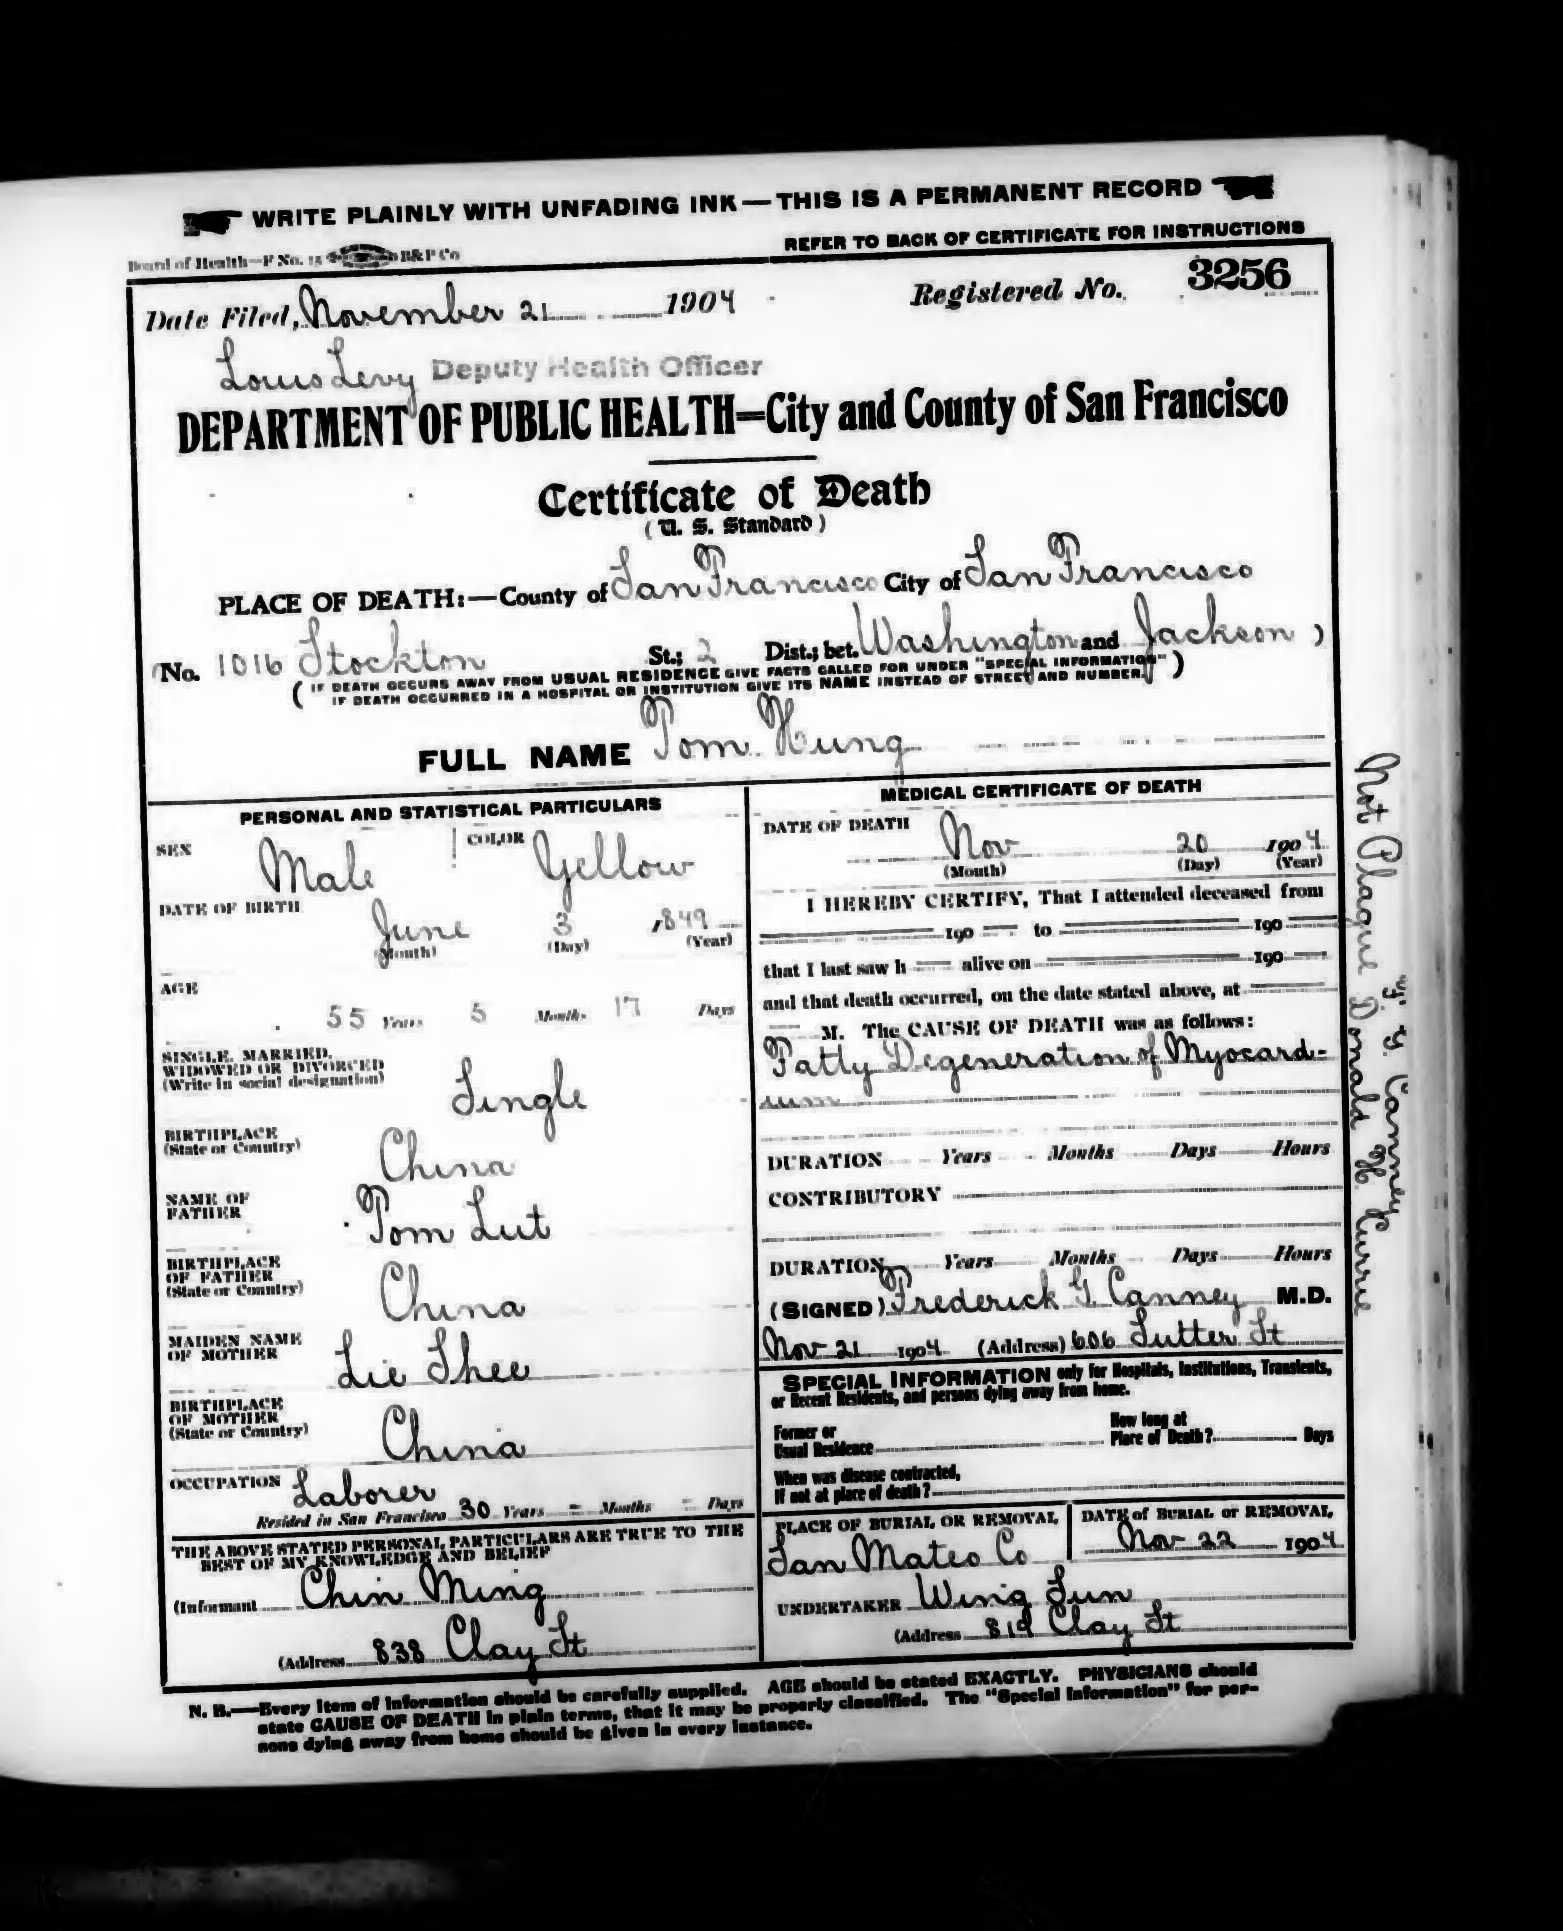 WRITE PLAINLY WITH UNFADING INK—THIS IS A PERMANENT RECORD
REFER TO BACK OF CERTIFICATE FOR INSTRUCTIONS
Board of Health—F No. 15 B&P Co
Date Filed, November 21 1904 Registered No. 3256
Louis Levy Deputy Health Officer
DEPARTMENT OF PUBLIC HEALTH=City and County of San Francisco
Certificate of Death
(U. S. Standard)
PLACE OF DEATH:—County of San Francisco City of San Francisco
(No. 1016 Stockton St.; 2 Dist.; bet. Washington and Jackson )
( IF DEATH OCCURS AWAY FROM USUAL RESIDENCE GIVE FACTS CALLED FOR UNDER "SPECIAL INFORMATION" )
IF DEATH OCCURRED IN A HOSPITAL OR INSTITUTION GIVE ITS NAME INSTEAD OF STREET AND NUMBER.
FULL NAME Tom Hung
PERSONAL AND STATISTICAL PARTICULARS
SEX Male COLOR Yellow
DATE OF BIRTH
June 3 1849
(Month) (Day) (Year)
AGE
55 Years 5 Months 17 Days
SINGLE, MARRIED,
WIDOWED OR DIVORCED
(Write in social designation)
Single
BIRTHPLACE
(State or Country)
China
NAME OF
FATHER
Tom Lut
BIRTHPLACE
OF FATHER
(State or Country)
China
MAIDEN NAME
OF MOTHER
Lie Shee
BIRTHPLACE
OF MOTHER
(State or Country)
China
OCCUPATION Laborer
Resided in San Francisco 30 Years = Months = Days
THE ABOVE STATED PERSONAL PARTICULARS ARE TRUE TO THE
BEST OF MY KNOWLEDGE AND BELIEF
(Informant Chin Ming
(Address 838 Clay St
MEDICAL CERTIFICATE OF DEATH
DATE OF DEATH
Nov 20 1904
(Month) (Day) (Year)
I HEREBY CERTIFY, That I attended deceased from
190 to 190
that I last saw h alive on 190
and that death occurred, on the date stated above, at
M. The CAUSE OF DEATH was as follows:
Fatty Degeneration of Myocard-
ium
DURATION Years Months Days Hours
CONTRIBUTORY
DURATION Years Months Days Hours
(SIGNED) Frederick G Canney M.D.
Nov 21 1904 (Address) 606 Sutter St
SPECIAL INFORMATION only for Hospitals, Institutions, Transients,
or Recent Residents, and persons dying away from home.
Former or
Usual Residence
How long at
Place of Death? Days
When was disease contracted,
If not at place of death?
PLACE OF BURIAL OR REMOVAL
San Mateo Co
DATE of BURIAL or REMOVAL
Nov 22 1904
UNDERTAKER Wing Sun
(Address 819 Clay St
N. B.—Every item of information should be carefully supplied. AGE should be stated EXACTLY. PHYSICIANS should
state CAUSE OF DEATH in plain terms, that it may be properly classified. The "Special Information" for per-
sons dying away from home should be given in every instance.
Not Plague Donald H. Currie
"F. G. Canney